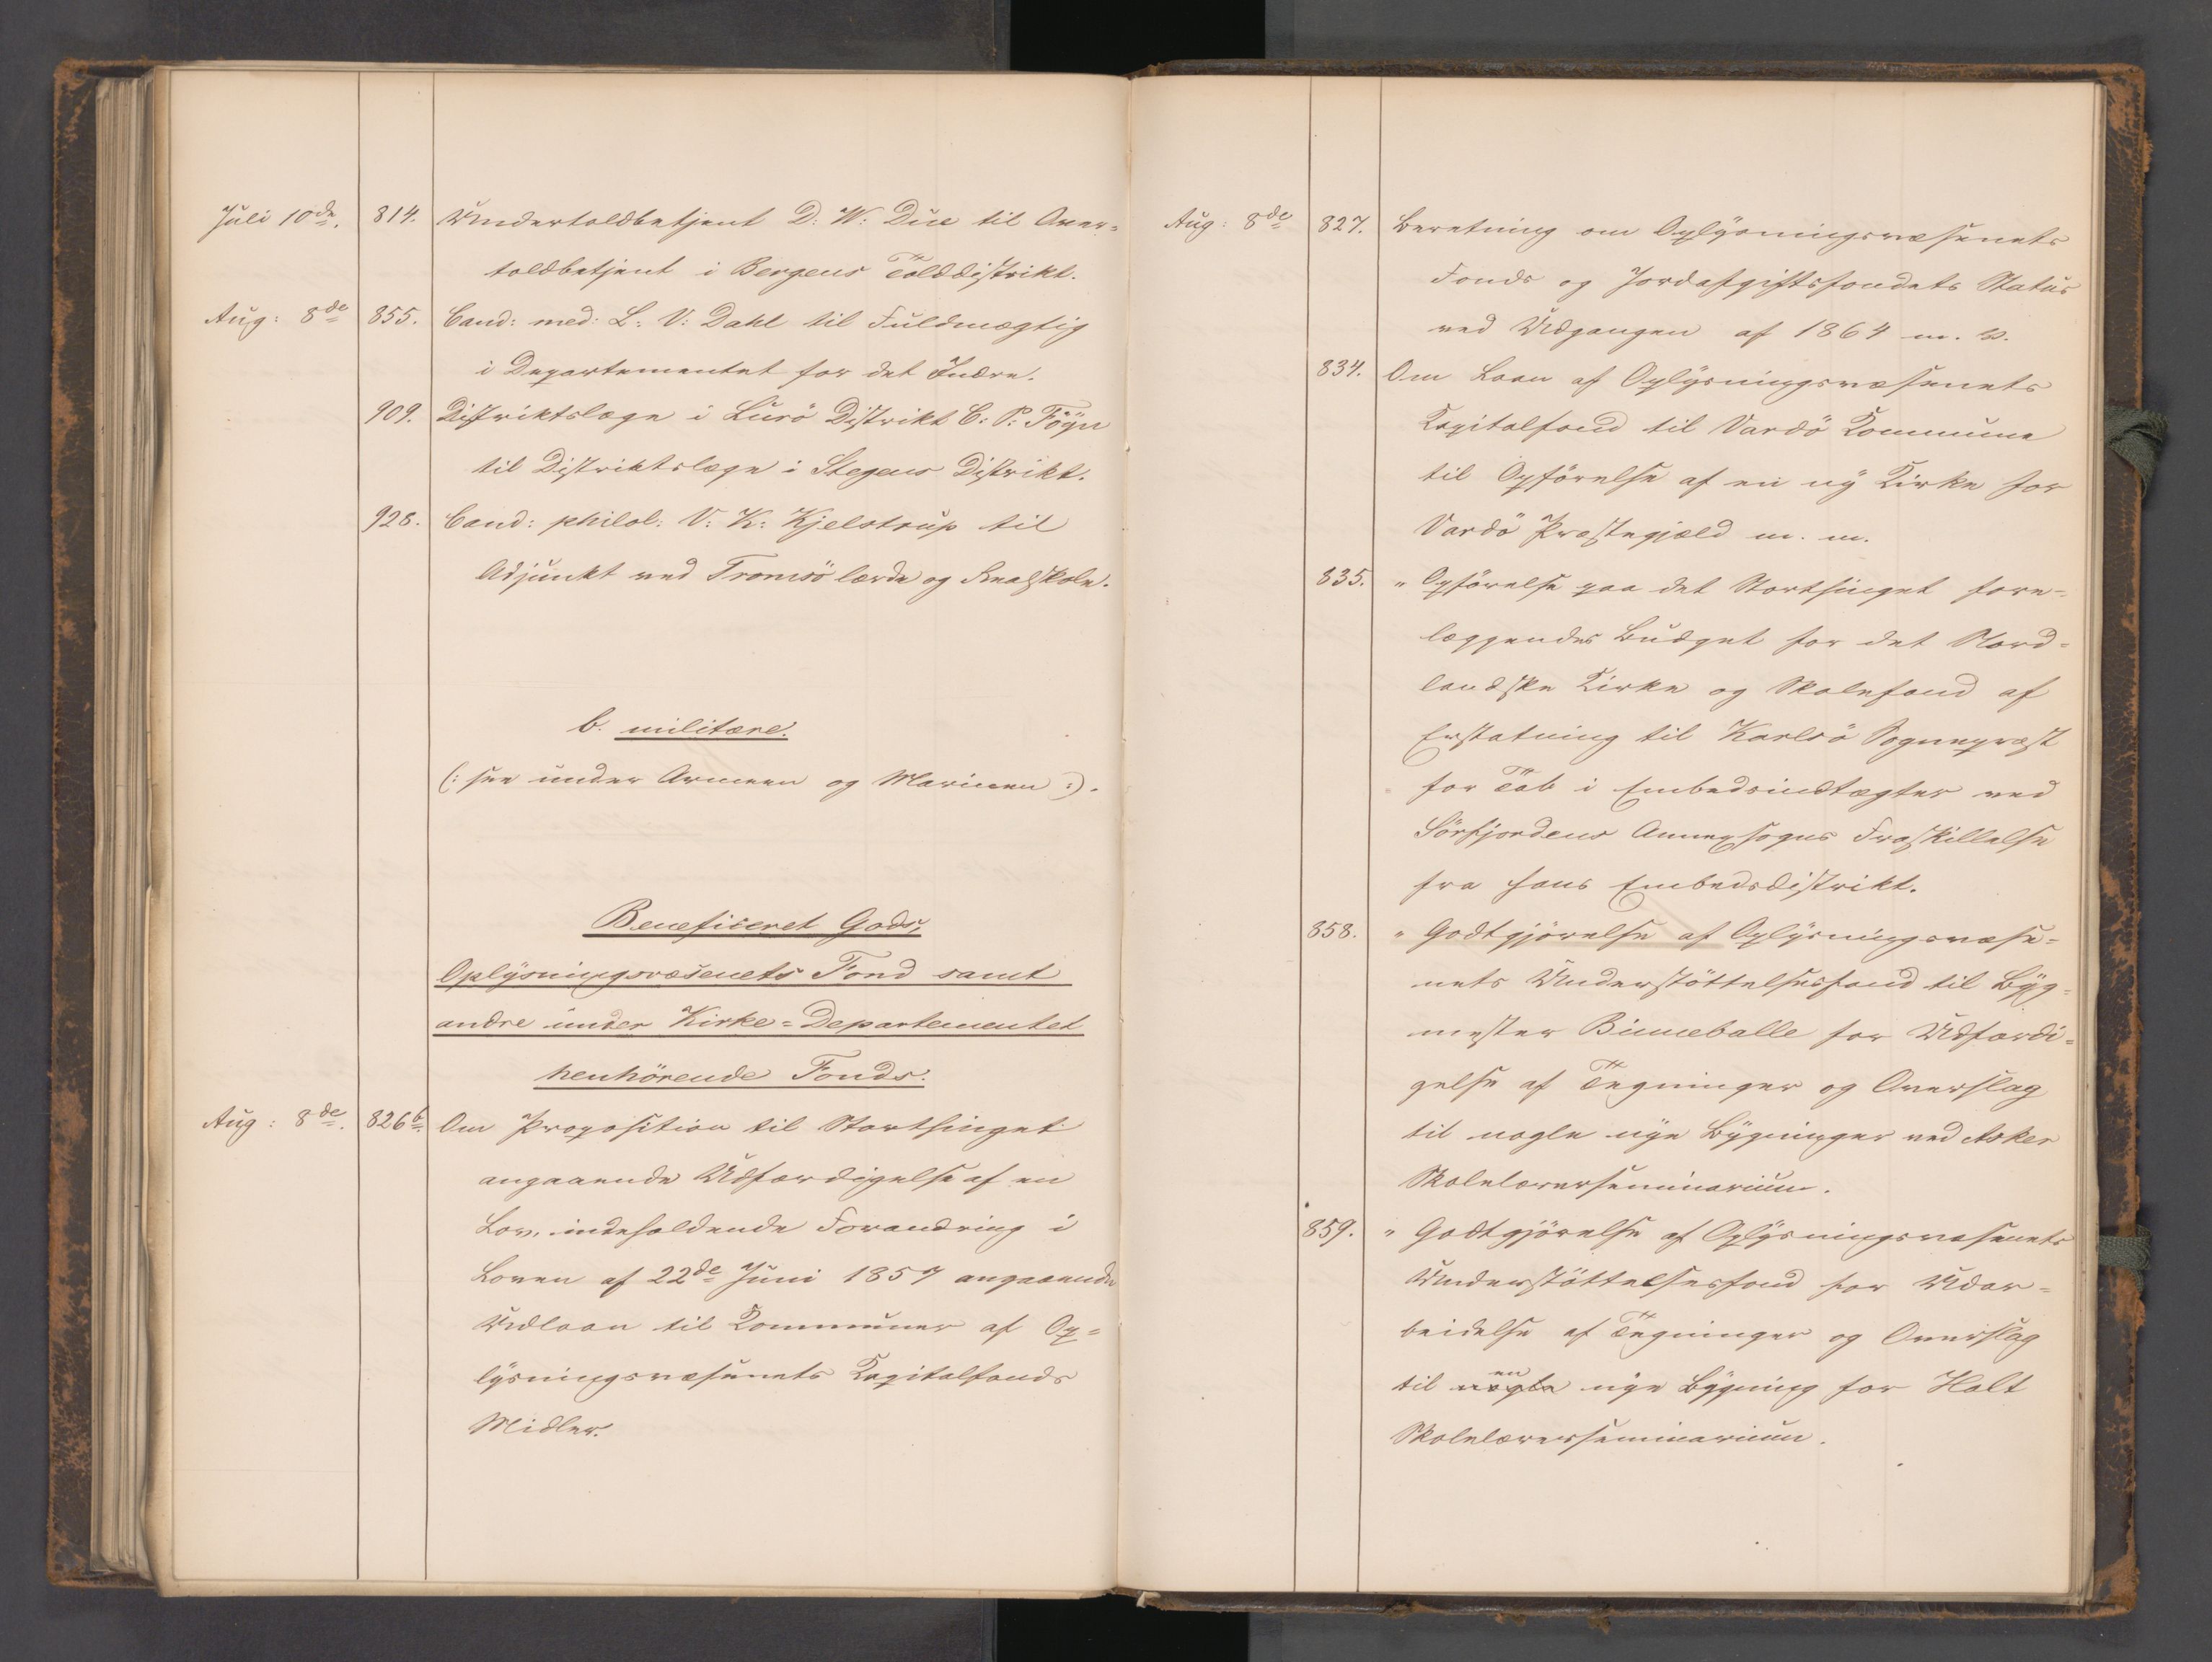 Juli 10de. 814. Undertoldbetjent D: W: Due til Over-
toldbetjent i Bergens Tolddistrikt.
Aug: 8de 855. Cand: med: L: V: Dahl til Fuldmægtig
i Departementet for det Indre.
909. Distriktslæge i Lurö Distrikt C: P: Föyn
til Distriktslæge i Stegens Distrikt.
928. Cand: philol: V: K: Kjelstrup til
Adjunkt ved Tromsö lærde og Realskole.
b. militære.
(: see under Armeen og Marinen :).
Beneficeret Gods,
Oplysningsvæsenets Fond samt
andre under Kirke-Departementet
henhörende Fonds.
Aug: 8de. 826b. Om Proposition til Storthinget
angaaende Udfærdigelse af en
Lov, indeholdende Forandring i
Loven af 22de Juni 1857 angaaende
Udlaan til Kommuner af Op-
lysningsvæsenets Kapitalfonds
Midler.
Aug: 8de 827. Beretning om Oplysningsvæsenets
Fonds og Jordafgiftsfondets Status
ved Udgangen af 1864 m. v.
834. Om Laan af Oplysningsvæsenets
Kapitalfond til Vardö Kommune
til Opförelse af en ny Kirke for
Vardö Præstegjæld m. m.
835. " Opförelse paa det Storthinget fore-
læggendes Budget for det Nord-
landske Kirke og Skolefond af
Erstatning til Karlsö Sognepræst
for Tab i Embedsindtægter ved
Sörfjordens Annexsogns Fraskillelse
fra hans Embedsdistrikt.
858. " Godtgjörelse af Oplysningsvæse-
nets Understöttelsesfond til Byg-
mester Binneballe for Udfærdi-
gelse af Tegninger og Overslag
til nogle nye Bygninger ved Asker
Skolelærerseminarium.
859. " Godtgjörelse af Oplysningsvæsenets
Understöttelsesfond for Udar-
beidelse af Tegninger og Overslag
til nogle en nye Bygning for Holt
Skolelærerseminarium.